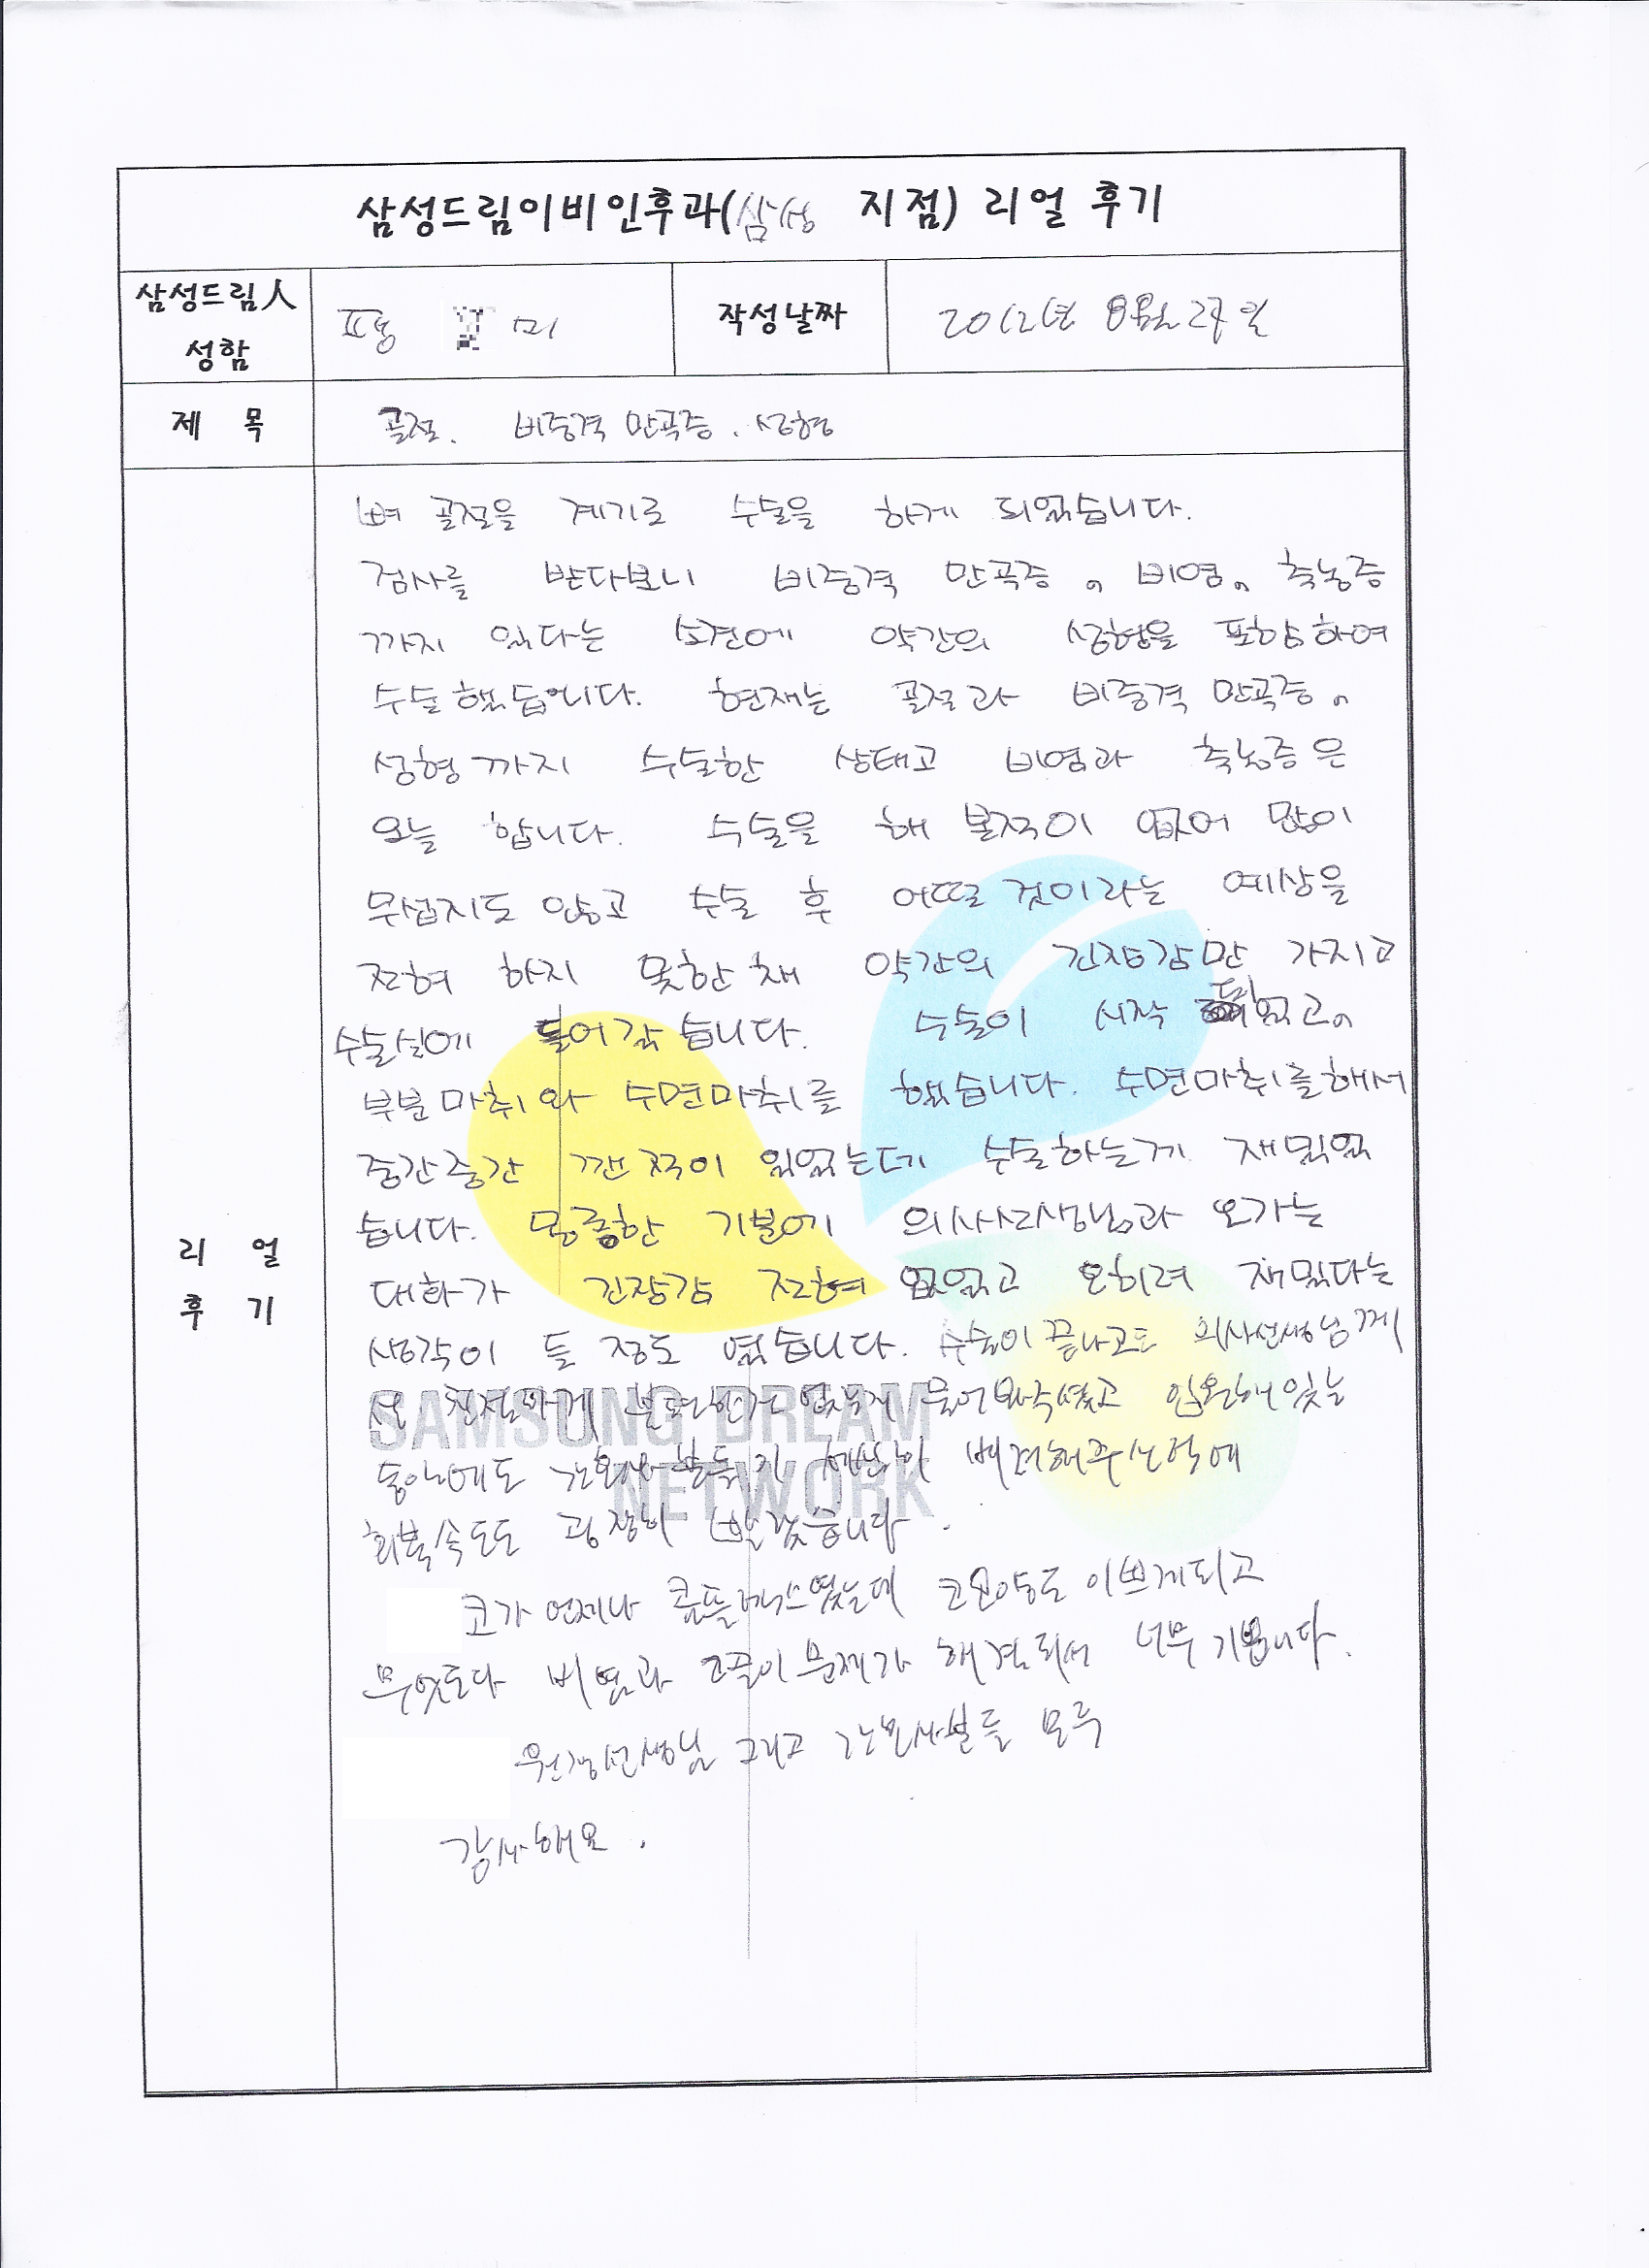 삼성드림이비인후과(삼성 지점) 리얼 후기
삼성드림人
성함
표 미
작성날짜
2012년 8월 27일
제 목
골절. 비중격 만곡증. 성형
리 얼
후 기
뼈 골절을 계기로 수술을 하게 되었습니다.
검사를 받다보니 비중격 만곡증, 비염, 축농증
까지 있다는 소견에 약간의 성형을 포함하여
수술했습니다. 현재는 골절과 비중격 만곡증,
성형까지 수술한 상태고 비염과 축농증은
오늘 합니다. 수술을 해 본적이 없어 많이
무섭지도 않고 수술 후 어떨 것이라는 예상을
전혀 하지 못한 채 약간의 긴장감만 가지고
수술실에 들어갔습니다. 수술이 시작 되었고,
부분마취와 수면마취를 했습니다. 수면마취를 해서
중간중간 깬 적이 있었는데 수술하는게 재밌었
습니다. 몽롱한 기분에 의사선생님과 오가는
대화가 긴장감 전혀 없었고 오히려 재밌다는
생각이 들 정도 였습니다. 수술이 끝나고도 의사선생님께
서 친절하게 불편한거 없냐 물어봐주셨고 입원해있는
동안에도 간호사분들이 배려해주신덕에
회복속도도 굉장히 빨랐습니다.
코가 언제나 콤플렉스였는데 코모양도 이쁘게되고
무엇보다 비염과 코골이 문제가 해결되서 너무 기쁩니다.
원장선생님 그리고 간호사분들 모두
감사해요.
SAMSUNG DREAM
NETWORK